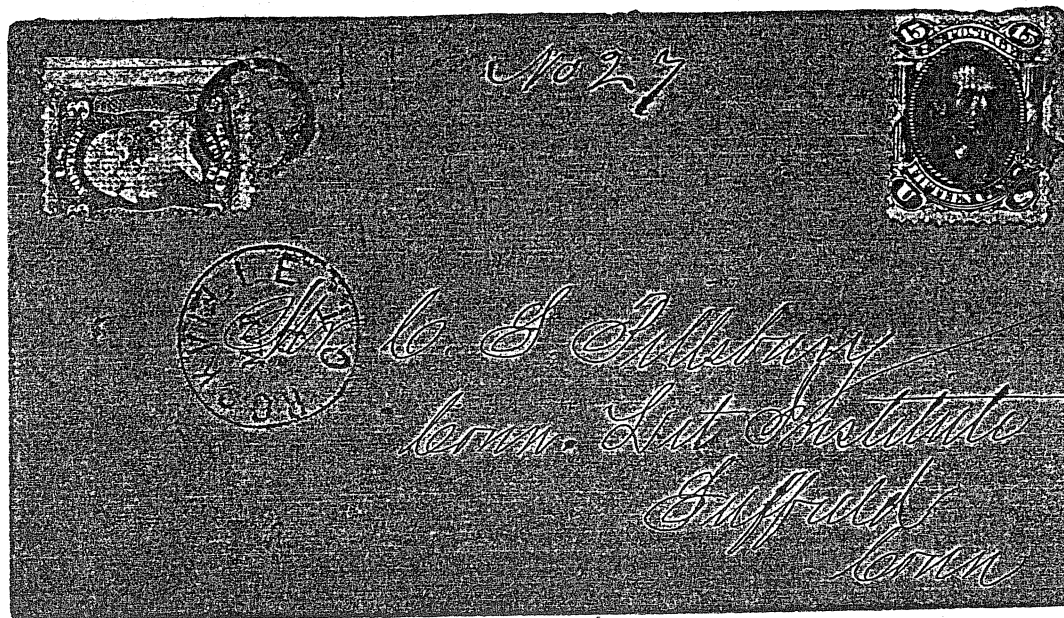 No 27
15 U.S. POSTAGE 15
FIFTEEN CENTS
U S
C. S Pillsbury
Conn. Lit Institute
Suffield
Conn